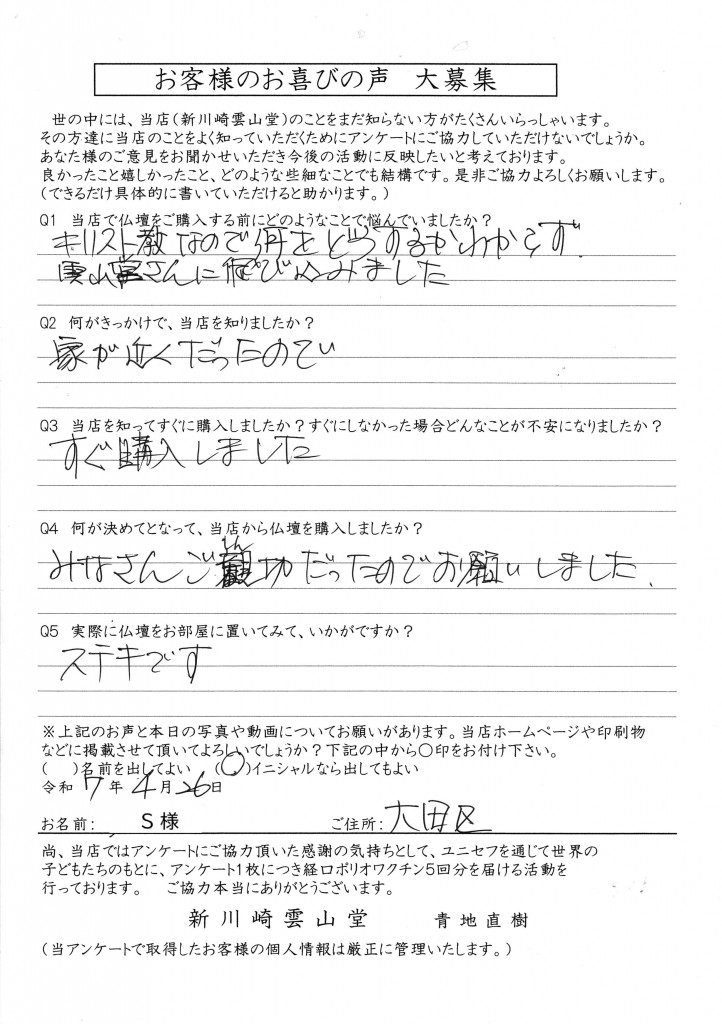 お客様のお喜びの声 大募集
世の中には、当店(新川崎雲山堂)のことをまだ知らない方がたくさんいらっしゃいます。
その方達に当店のことをよく知っていただくためにアンケートにご協力していただけないでしょうか。
あなた様のご意見をお聞かせいただき今後の活動に反映したいと考えております。
良かったこと嬉しかったこと、どのような些細なことでも結構です。是非ご協力よろしくお願いします。
(できるだけ具体的に書いていただけると助かります。)
Q1 当店で仏壇をご購入する前にどのようなことで悩んでいましたか?
キリスト教なので何をどうするかわからず、
雲山堂さんに飛び込みました
Q2 何がきっかけで、当店を知りましたか?
家が近くだったので
Q3 当店を知ってすぐに購入しましたか?すぐにしなかった場合どんなことが不安になりましたか?
すぐ購入しました
Q4 何が決めてとなって、当店から仏壇を購入しましたか?
しん
みなさんご親切だったのでお願いしました、
Q5 実際に仏壇をお部屋に置いてみて、いかがですか?
ステキです
※上記のお声と本日の写真や動画についてお願いがあります。当店ホームページや印刷物
などに掲載させて頂いてよろしいでしょうか?下記の中から○印をお付け下さい。
( )名前を出してよい (○)イニシャルなら出してもよい
令和 7 年 4 月 26 日
お名前: S様 ご住所: 大田区
尚、当店ではアンケートにご協力頂いた感謝の気持ちとして、ユニセフを通じて世界の
子どもたちのもとに、アンケート1枚につき経口ポリオワクチン5回分を届ける活動を
行っております。 ご協力本当にありがとうございます。
新川崎雲山堂 青地直樹
(当アンケートで取得したお客様の個人情報は厳正に管理いたします。)